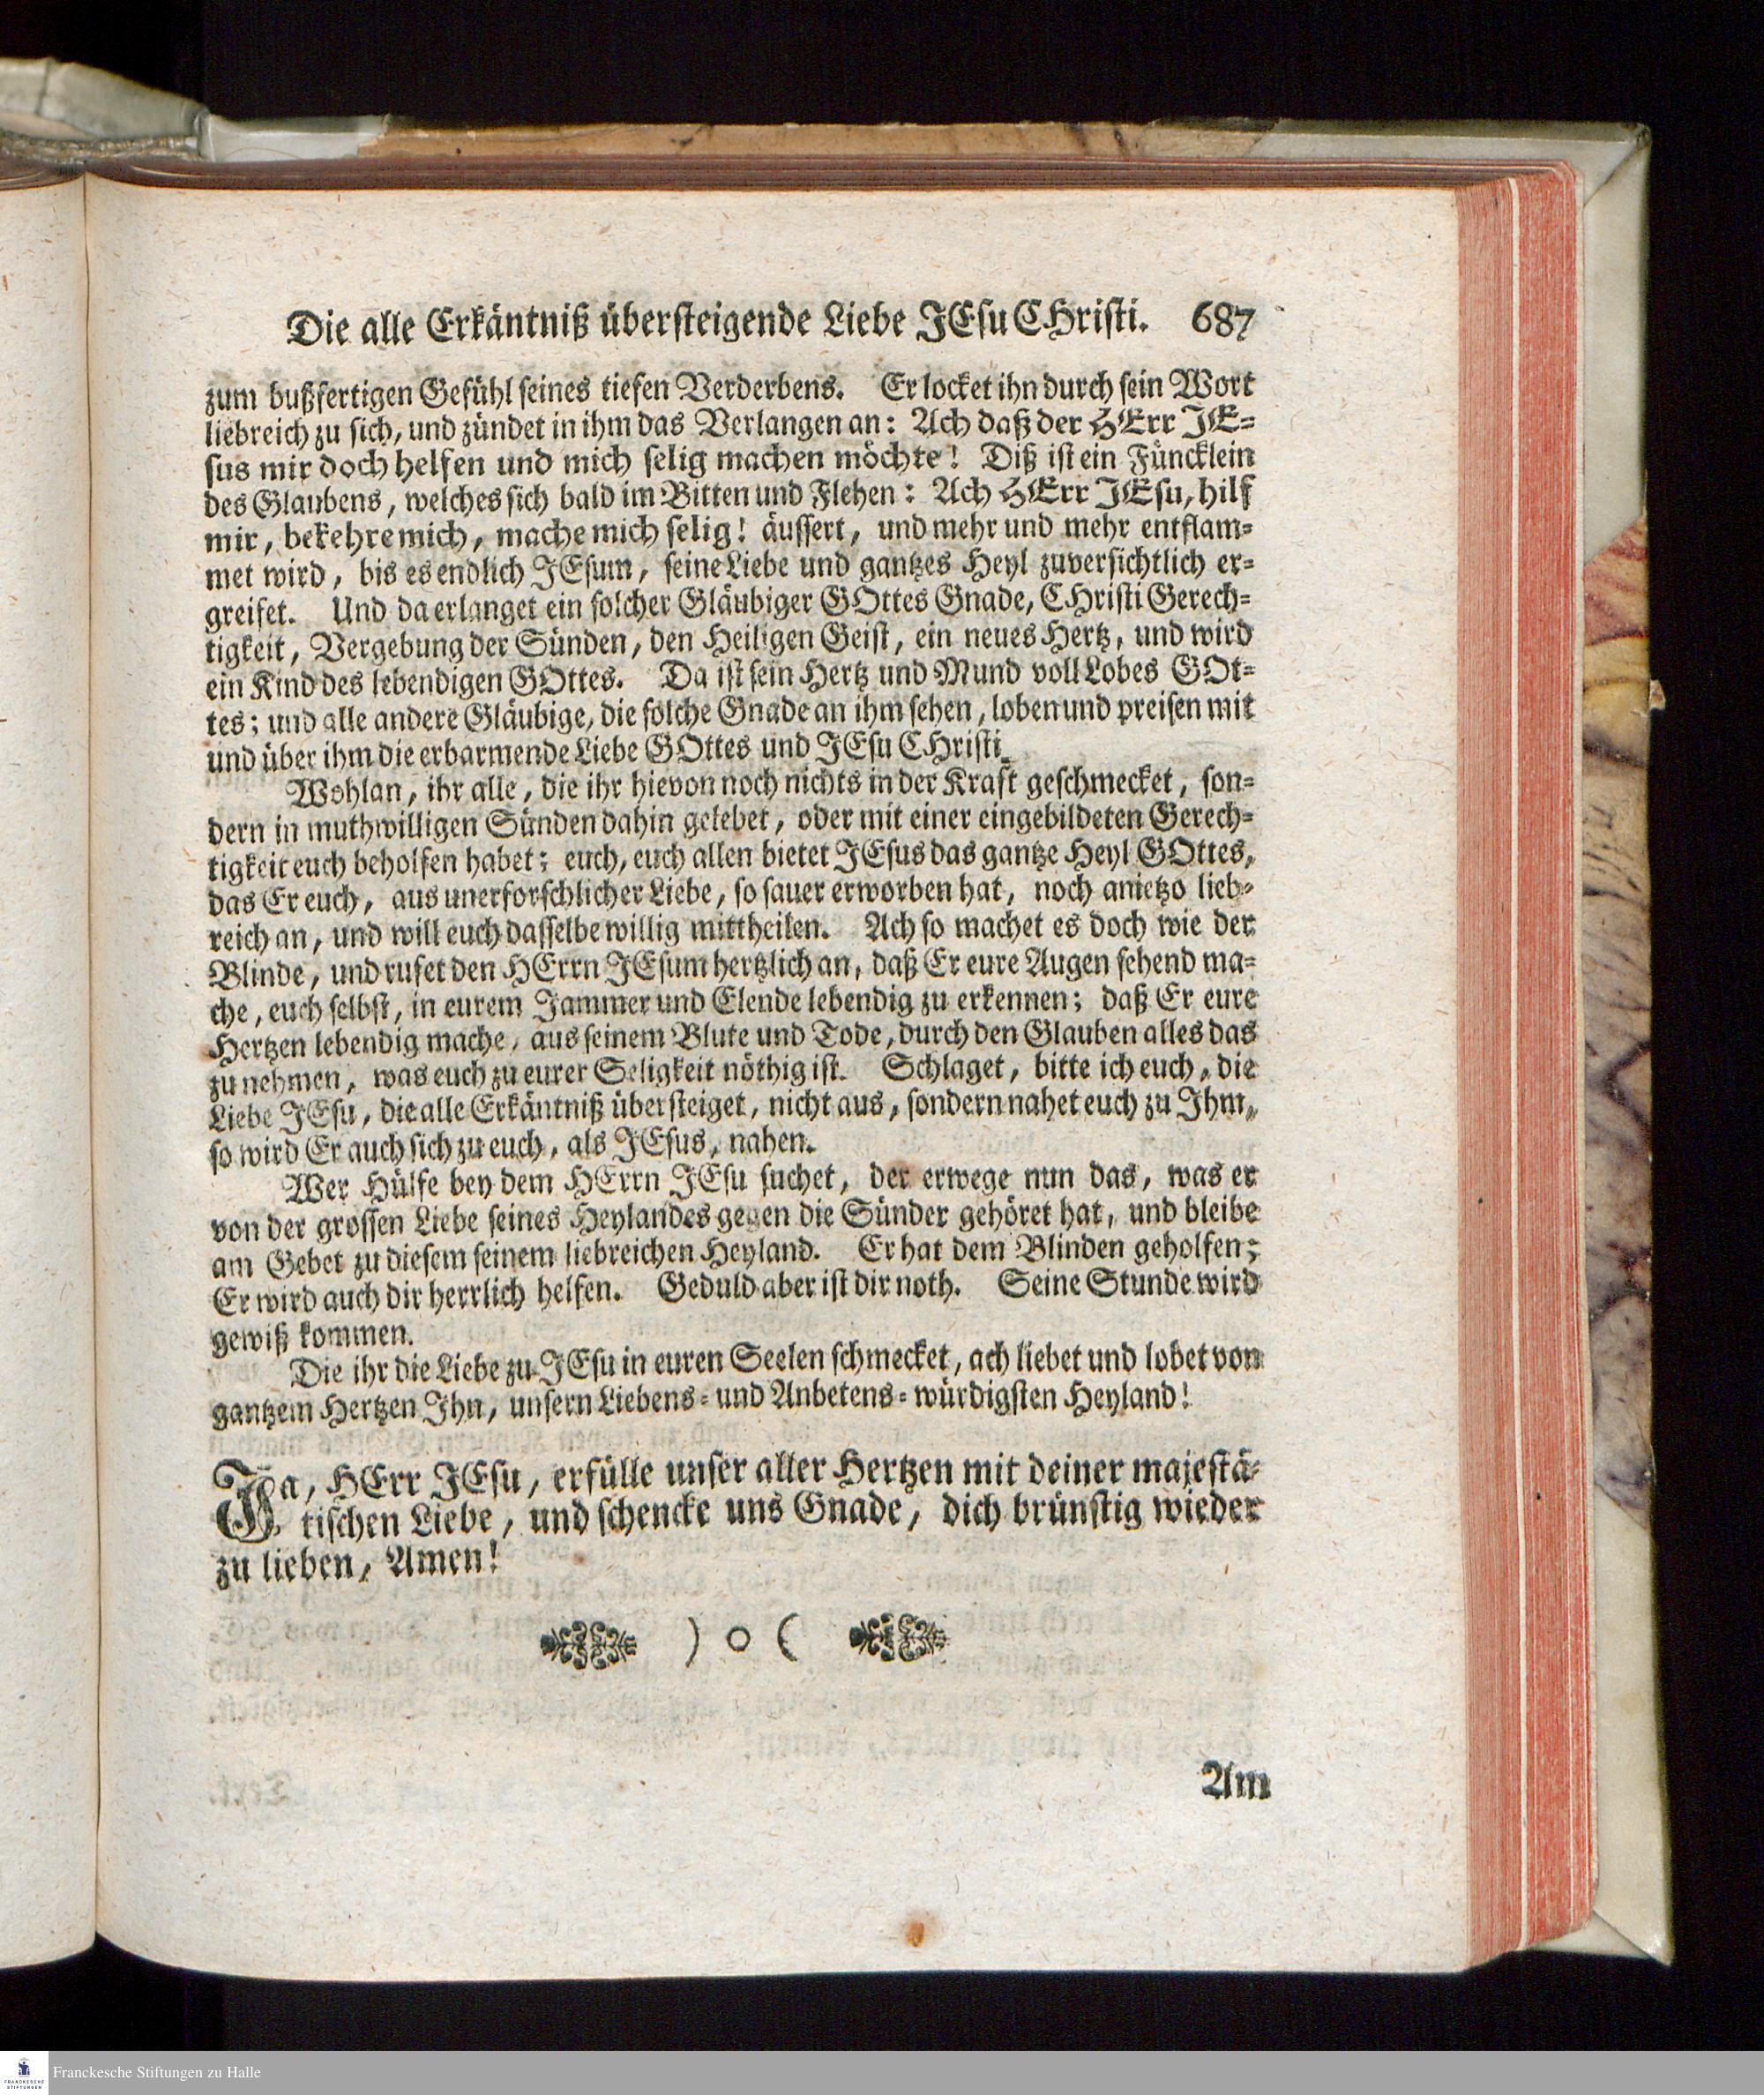 Die alle Erkäntniß übersteigende Liebe JEsu CHristi. 687
zum bußfertigen Gefühl seines tiefen Verderbens. Er locket ihn durch sein Wort
liebreich zu sich, und zündet in ihm das Verlangen an: Ach daß der HErr JE-
sus mir doch helfen und mich selig machen möchte! Diß ist ein Füncklein
des Glaubens, welches sich bald im Bitten und Flehen: Ach HErr JEsu, hilf
mir, bekehre mich, mache mich selig! äussert, und mehr und mehr entflam-
met wird, bis es endlich JEsum, seine Liebe und gantzes Heyl zuversichtlich er-
greifet. Und da erlanget ein solcher Gläubiger GOttes Gnade, CHristi Gerech-
tigkeit, Vergebung der Sünden, den Heiligen Geist, ein neues Hertz, und wird
ein Kind des lebendigen GOttes. Da ist sein Hertz und Mund voll Lobes GOt-
tes; und alle andere Gläubige, die solche Gnade an ihm sehen, loben und preisen mit
und über ihm die erbarmende Liebe GOttes und JEsu CHristi.
Wohlan, ihr alle, die ihr hievon noch nichts in der Kraft geschmecket, son-
dern in muthwilligen Sünden dahin gelebet, oder mit einer eingebildeten Gerech-
tigkeit euch beholfen habet; euch, euch allen bietet JEsus das gantze Heyl GOttes,
das Er euch, aus unerforschlicher Liebe, so sauer erworben hat, noch anietzo lieb-
reich an, und will euch dasselbe willig mittheilen. Ach so machet es doch wie der
Blinde, und rufet den HErrn JEsum hertzlich an, daß Er eure Augen sehend ma-
che, euch selbst, in eurem Jammer und Elende lebendig zu erkennen; daß Er eure
Hertzen lebendig mache, aus seinem Blute und Tode, durch den Glauben alles das
zu nehmen, was euch zu eurer Seligkeit nöthig ist. Schlaget, bitte ich euch, die
Liebe JEsu, die alle Erkäntniß übersteiget, nicht aus, sondern nahet euch zu Ihm,
so wird Er auch sich zu euch, als JEsus, nahen.
Wer Hülfe bey dem HErrn JEsu suchet, der erwege nun das, was er
von der grossen Liebe seines Heylandes gegen die Sünder gehöret hat, und bleibe
am Gebet zu diesem seinem liebreichen Heyland. Er hat dem Blinden geholfen;
Er wird auch dir herrlich helfen. Geduld aber ist dir noth. Seine Stunde wird
gewiß kommen.
Die ihr die Liebe zu JEsu in euren Seelen schmecket, ach liebet und lobet von
gantzem Hertzen Ihn, unsern Liebens- und Anbetens-würdigsten Heyland!
Ja, HErr JEsu, erfülle unser aller Hertzen mit deiner majestä-
tischen Liebe, und schencke uns Gnade, dich brünstig wieder
zu lieben, Amen!
) o (
Am
FRANCKESCHE
STIFTUNGEN
Franckesche Stiftungen zu Halle